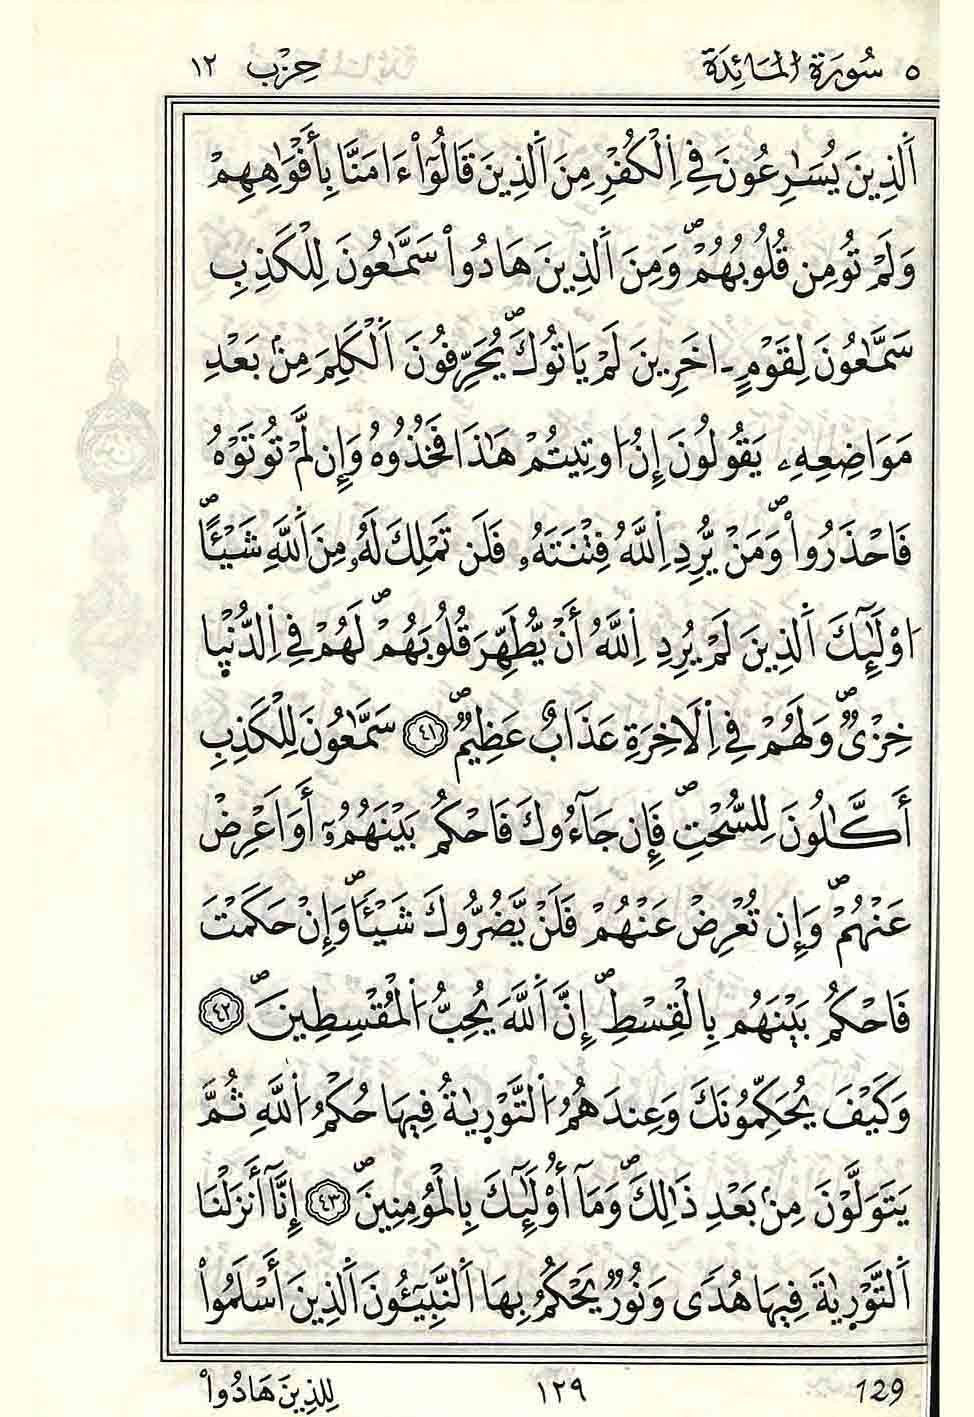 ٥ سُورَةُ الْمَائِدَة حِزْب ١٢
اَ۬لذِينَ يُسَٰرِعُونَ فِي اِ۬لْكُفْرِ مِنَ اَ۬لذِينَ قَالُوٓاْ ءَامَنَّا بِأَفْوَٰهِهِمْ
وَلَمْ تُومِن قُلُوبُهُمْۖ وَمِنَ اَ۬لذِينَ هَادُواْ سَمَّٰعُونَ لِلْكَذِبِ
سَمَّٰعُونَ لِقَوْمٍ ـ اخَرِينَ لَمْ يَاتُوكَۖ يُحَرِّفُونَ اَ۬لْكَلِمَ مِنۢ بَعْدِ
مَوَاضِعِهِۦ يَقُولُونَ إِنُ اوتِيتُمْ هَٰذَا فَخُذُوهُ وَإِن لَّمْ تُوتَوْهُ
فَاحْذَرُواْۖ وَمَنْ يُّرِدِ اِ۬للَّهُ فِتْنَتَهُۥ فَلَن تَمْلِكَ لَهُۥ مِنَ اَ۬للَّهِ شَيْـٔاًۖ
ا۟وْلَٰٓئِكَ اَ۬لذِينَ لَمْ يُرِدِ اِ۬للَّهُ أَنْ يُّطَهِّرَ قُلُوبَهُمْۖ لَهُمْ فِي اِ۬لدُّنْي۪ا
خِزْيٞۖ وَلَهُمْ فِي اِ۬لَاخِرَةِ عَذَابٌ عَظِيمٞۖ ٤١ سَمَّٰعُونَ لِلْكَذِبِ
أَكَّٰلُونَ لِلسُّحْتِۖ فَإِن جَآءُوكَ فَاحْكُم بَيْنَهُمُۥٓ أَوَ اَعْرِضْ
عَنْهُمْۖ وَإِن تُعْرِضْ عَنْهُمْ فَلَنْ يَّضُرُّوكَ شَيْـٔاًۖ وَإِنْ حَكَمْتَ
فَاحْكُم بَيْنَهُم بِالْقِسْطِۖ إِنَّ اَ۬للَّهَ يُحِبُّ اُ۬لْمُقْسِطِينَۖ ٤٢
وَكَيْفَ يُحَكِّمُونَكَ وَعِندَهُمُ اُ۬لتَّوْر۪يٰةُ فِيهَا حُكْمُ اُ۬للَّهِ ثُمَّ
يَتَوَلَّوْنَ مِنۢ بَعْدِ ذَٰلِكَۖ وَمَآ أُوْلَٰٓئِكَ بِالْمُومِنِينَۖ ٤٣ إِنَّآ أَنزَلْنَا
اَ۬لتَّوْر۪يٰةَ فِيهَا هُديٗ وَنُورٞ يَحْكُمُ بِهَا اَ۬لنَّبِيٓـُٔونَ اَ۬لذِينَ أَسْلَمُواْ
129 ١٢٩ لِلذِينَ هَادُواْ